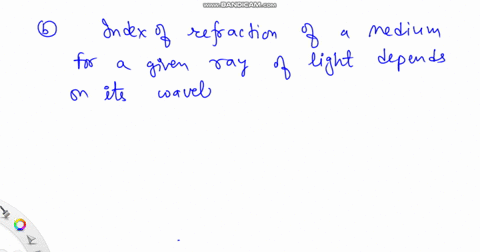 www.BANDICAM.com
⑥ Index of refraction of a medium
for a given ray of light depends
on its wavel